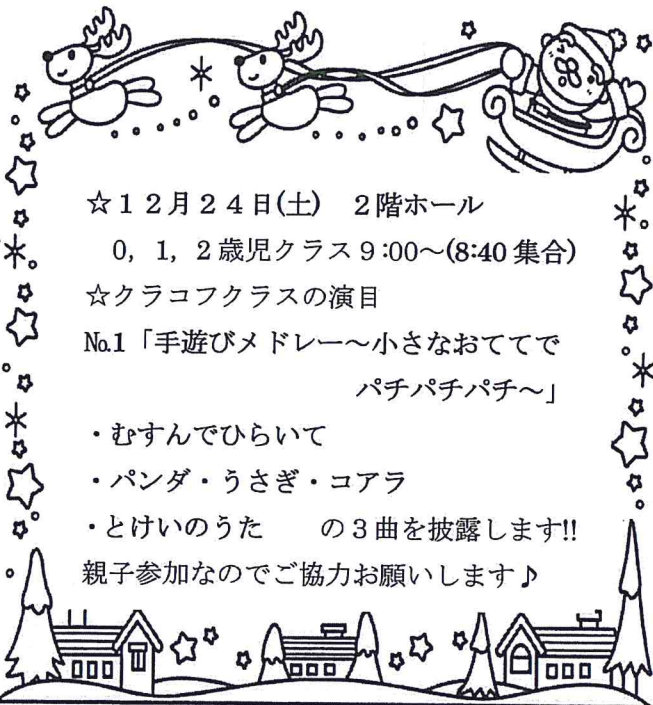 ☆12月24日(土)　2階ホール
0, 1, 2歳児クラス9:00～(8:40集合)
☆クラコフクラスの演目
№1「手遊びメドレー～小さなおててで
パチパチパチ～」
・むすんでひらいて
・パンダ・うさぎ・コアラ
・とけいのうた　　の3曲を披露します!!
親子参加なのでご協力お願いします♪